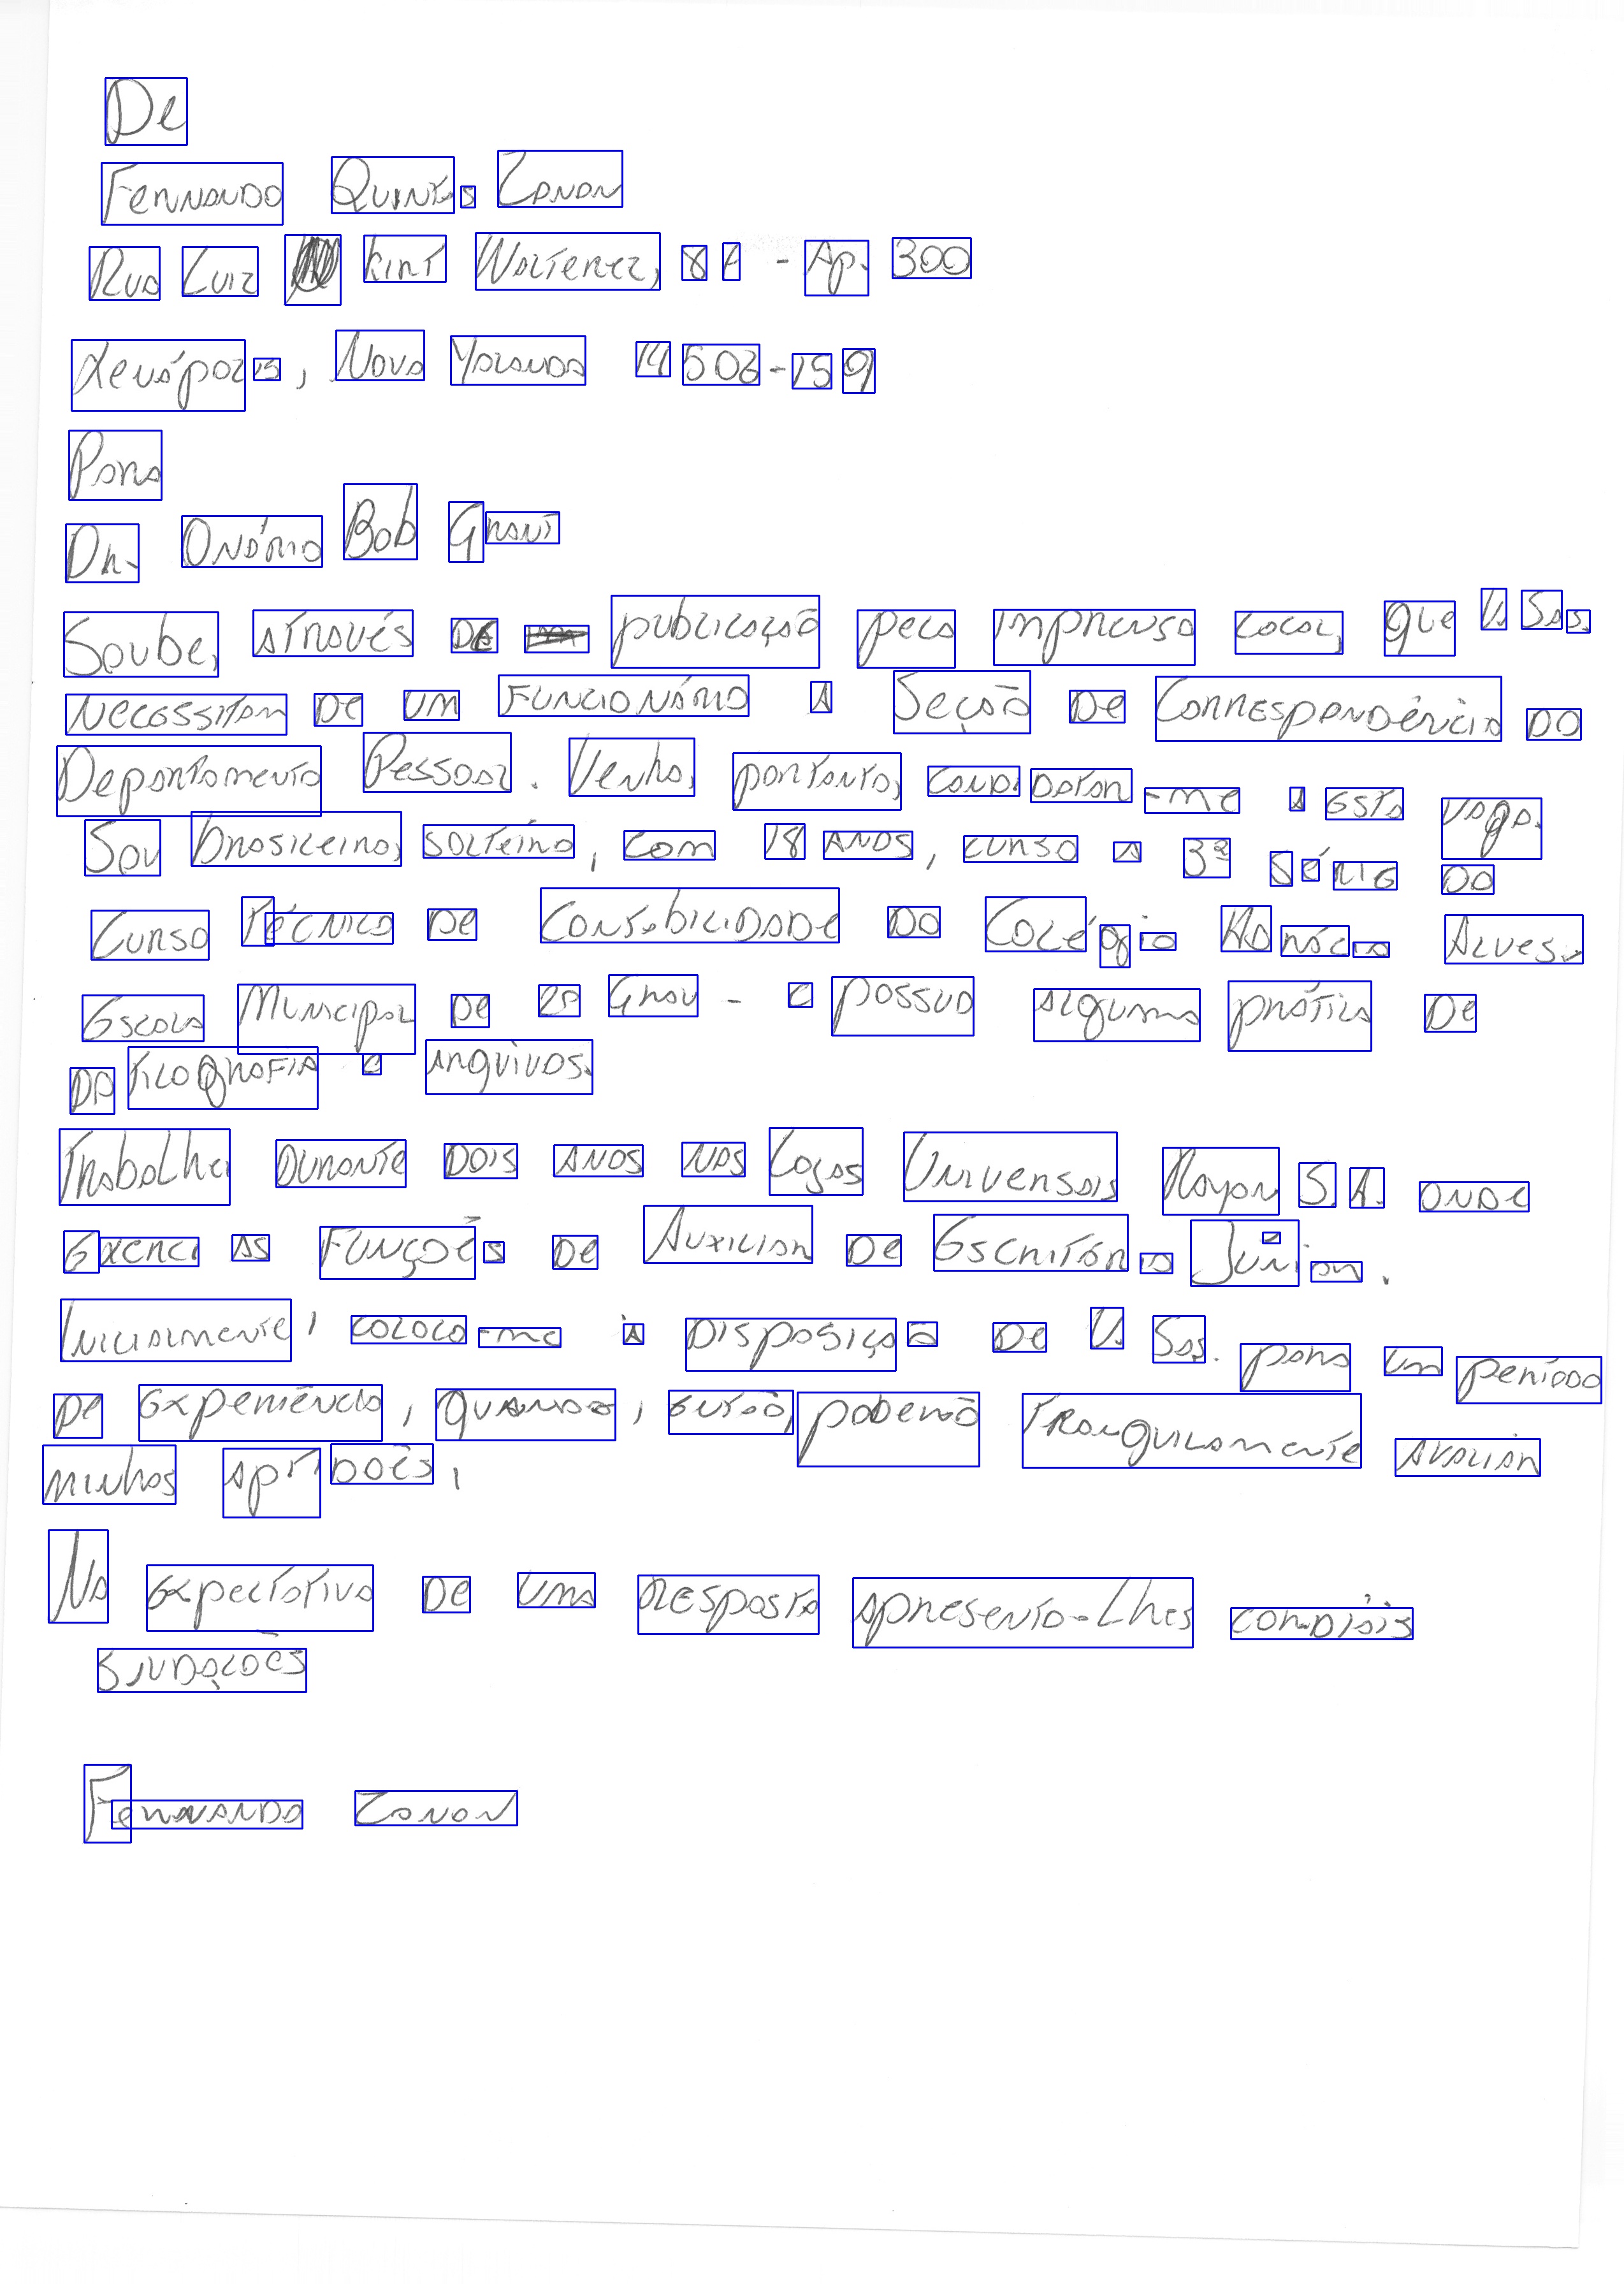 De
Fernando Quintas Zanon
Rua Luiz Kint Walterez, 87 - Ap. 300
Xenápolis, Nova Yolanda 14502-159
Para
Dr. Onório Bob Grant
Soube, através de publicação pela imprensa local, que V. Sas.
necessitam de um funcionário a Seção de Correspondência do
Departamento Pessoal. Venho, portanto, candidatar-me a esta vaga.
Sou brasileiro, solteiro, com 18 anos, curso a 3ª série do
Curso Técnico de Contabilidade do Colégio Honócio Alves.
Escola Municipal de 2º Grau - e possuo alguma prática de
datilografia e arquivos.
Trabalhei durante dois anos nas Lojas Universais Rayon S.A. onde
exerci as funções de Auxiliar de Escritório Júnior.
Inicialmente, coloco-me à disposição de V. Sas. para um período
de experiência, quando, então, poderão tranquilamente avaliar
minhas aptidões.
Na expectativa de uma resposta apresento-lhes cordiais
saudações
Fernando Zanon